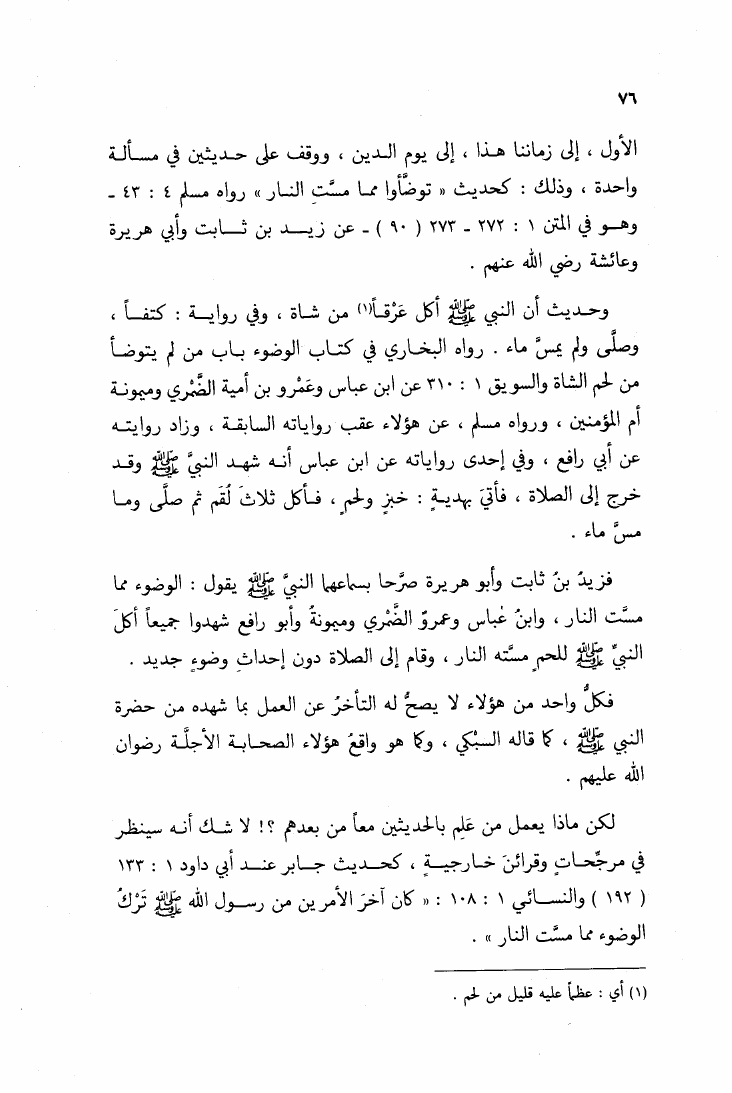 ٧٦
الأول ، إلى زماننا هـذا ، إلى يوم الـدين ، ووقف على حـديثين في مسـألـة
واحدة ، وذلك : كحديث « توضَّأوا ممـا مسَّتِ النـار » رواه مسلم ٤ : ٤٣ ـ
وهـو في المتن ١ : ٢٧٢ ـ ٢٧٣ ( ٩٠ ) ـ عن زيـد بن ثـابت وأبي هريرة
وعائشة رضي الله عنهم .
وحـديث أن النبي ﷺ أكل عَرْقـاً(١) من شـاة ، وفي روايـة : كتفـاً ،
وصلَّى ولم يمسَّ ماء . رواه البخـاري في كتـاب الوضوء بـاب من لم يتوضـأ
من لحم الشاة والسويق ١ : ٣١٠ عن ابن عباس وعَمْرو بن أمية الضَّمْري وميونـة
أم المؤمنين ، ورواه مسلم ، عن هؤلاء عقب رواياته السـابقـة ، وزاد روايتـه
عن أبي رافع ، وفي إحدى رواياته عن ابن عباس أنـه شهـد النبيَّ ﷺ وقـد
خرج إلى الصلاة ، فأتيَ بهديـةٍ : خبزٍ ولحمٍ ، فـأكل ثلاثَ لُقَمٍ ثم صلَّى ومـا
مسَّ ماء .
فزيدُ بنُ ثابت وأبو هريرة صرَّحا بسماعهما النبيَّ ﷺ يقول : الوضوء مما
مسَّت النار ، وابنُ عباس وعمروٌ الضَّمْري وميونةُ وأبو رافع شهدوا جميعاً أكلَ
النبيِّ ﷺ للحمٍ مسَّته النار ، وقام إلى الصلاة دون إحداثِ وضوءٍ جديد .
فكلُّ واحد من هؤلاء لا يصحُّ له التأخرُ عن العمل بما شهده من حضرة
النبي ﷺ ، كما قاله السبْكي ، وكما هو واقعُ هؤلاء الصحـابـة الأجلَّـة رضوان
الله عليهم .
لكن ماذا يعمل من عَلِم بالحديثين معاً من بعدهم ؟! لا شـك أنـه سينظر
في مرجِّحـاتٍ وقرائنَ خـارجيـةٍ ، كحـديث جـابر عنـد أبي داود ١ : ١٣٣
( ١٩٢ ) والنسـائي ١ : ١٠٨ : « كان آخرَ الأمرين من رسول الله ﷺ تَرْكُ
الوضوء مما مسَّت النار » .
(١) أي : عظماً عليه قليل من لحم .